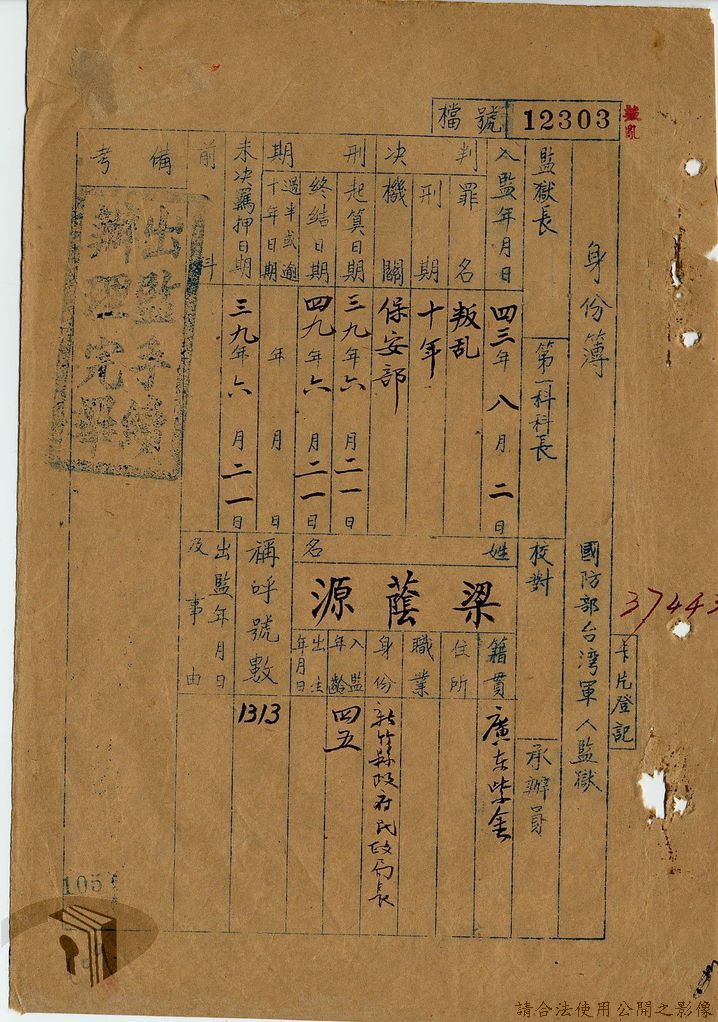 檔號
12303
叛亂
身份簿
國防部台灣軍人監獄
37443
卡片登記
監獄長
第一科科長
校對
承辦員
入監年月日
四三年八月二日
判決
罪名
叛乱
刑期
十年
機關
保安部
刑期
起算日期
三九年六月二一日
終結日期
四九年六月二一日
過半或逾十年日期
年月日
未決羈押日期
三九年六月二一日
前科
備考
出監手續
辦理完畢
姓名
梁蔭源
籍貫
廣东紫金
住所
職業
身份
新竹縣政府民政局長
入監年齡
四五
出生年月日
稱呼號數
1313
出監年月日及事由
105
請合法使用公開之影像